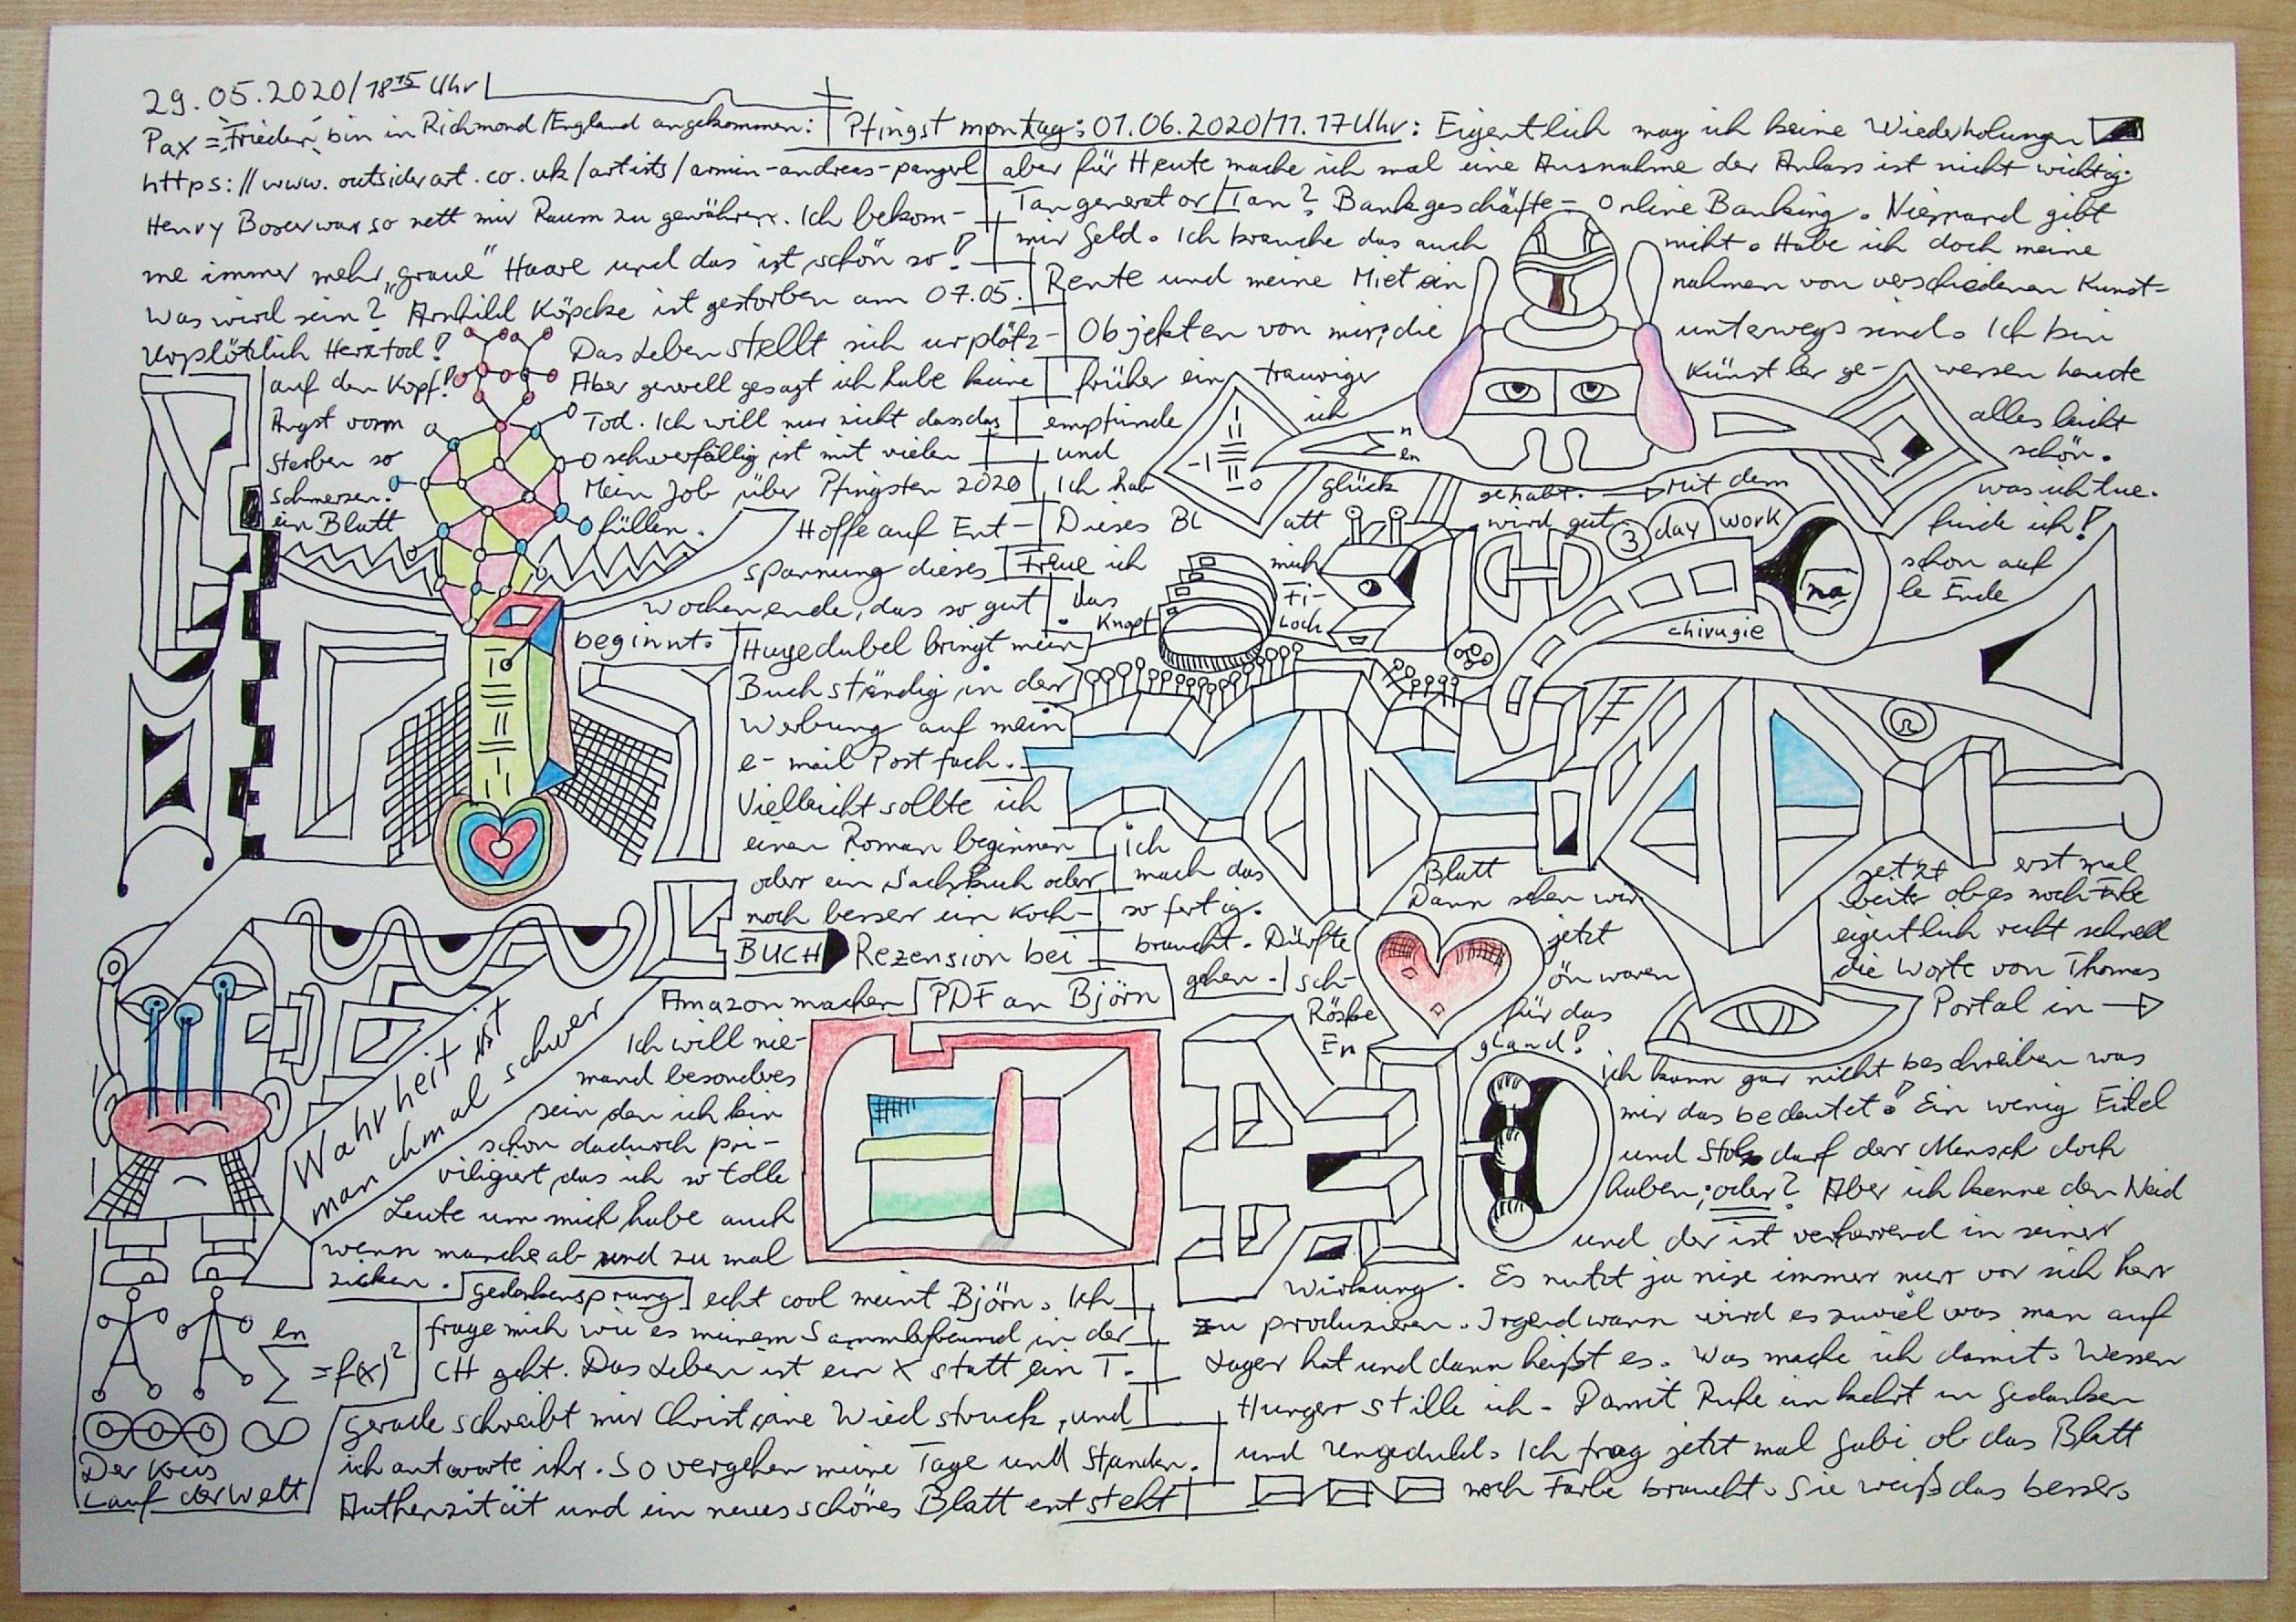 29.05.2020/18 15 Uhr
Pax = "Frieden" bin in Richmond/England angekommen:
https://www.outsiderart.co.uk/artists/armin-andreas-pangerl
Henry Boxer war so nett mir Raum zu gewähren. Ich bekom-
me immer mehr „graue" Haare und das ist schön so!
Was wird sein? Arnhild Köpcke ist gestorben am 07.05.
Urplötzlich Herztod! Das Leben stellt sich urplötz-
auf den Kopf! Aber generell gesagt ich habe keine
Angst vorm Tod. Ich will nur nicht das das
Sterben so schwerfällig ist mit vielen
Schmerzen. Mein Job über Pfingsten 2020
ein Blatt füllen. Hoffe auf Ent-
spannung dieses
Wochenende, das so gut
beginnt. Hugedubel bringt mein
Buch ständig in der
Werbung auf mein
e-mail Postfach.
Vielleicht sollte ich
einen Roman beginnen
oder ein Sachbuch oder
noch besser ein Koch-
BUCH Rezension bei
Amazon machen PDF an Björn
Ich will nie-
mand besondres
sein den ich bin
schon dadurch pri-
viligiert das ich so tolle
Leute um mich habe auch
wenn manche ab und zu mal
zicken. Gedankensprung echt cool meint Björn. Ich
frage mich wie es meinem Sammlerfreund in der
CH geht. Das Leben ist ein X statt ein T.
Gerade schreibt mir Christiane Wiedstruck, und
ich antworte ihr. So vergehen meine Tage und Stunden.
Authenzität und ein neues schönes Blatt entsteht
Wahrheit ist
manchmal schwer
en
Σ = f(x)²
∞
Der Kreis
Lauf der Welt
Pfingstmontag: 01.06.2020/11.17 Uhr: Eigentlich mag ich keine Wiederholungen
aber für Heute mache ich mal eine Ausnahme der Anlass ist nicht wichtig.
Tangenerator/Tan? Bankgeschäfte = Online Banking. Niemand gibt
mir Geld. Ich brauche das auch nicht. Habe ich doch meine
Rente und meine Mietein nahmen von verschiedenen Kunst-
Objekten von mir, die unterwegs sind. Ich bin
früher ein trauriger Künstler ge- wesen heute
empfinde ich alles leicht
und schön.
Ich hab glück gehabt. Mit dem was ich tue.
Dieses Bl att wird gut finde ich!
Freue ich mich schon auf
das Fi- le Ende
Knopf Loch
3 day work
na
chirugie
ich Blatt jetzt erst mal
mach das Dann sehen wir weiter ob es noch Farbe
so fertig. braucht. Dürfte jetzt eigentlich recht schnell
gehen. Sch- ön waren die Worte von Thomas
Röske für das Portal in
En gland!
ich kann gar nicht beschreiben was
mir das bedeutet! Ein wenig Eitel
und Stolz darf der Mensch doch
haben; oder? Aber ich kenne den Neid
und der ist verherrend in seiner
Wirkung. Es nutzt ja nix immer nur vor sich herr
zu produzieren. Irgendwann wird es zuviel was man auf
Lager hat und dann heißt es. Was mache ich damit. Wessen
Hunger stille ich. Damit Ruhe einkehrt in Gedanken
und Ungeduld. Ich frag jetzt mal Gabi ob das Blatt
noch Farbe braucht. Sie weiß das besser.